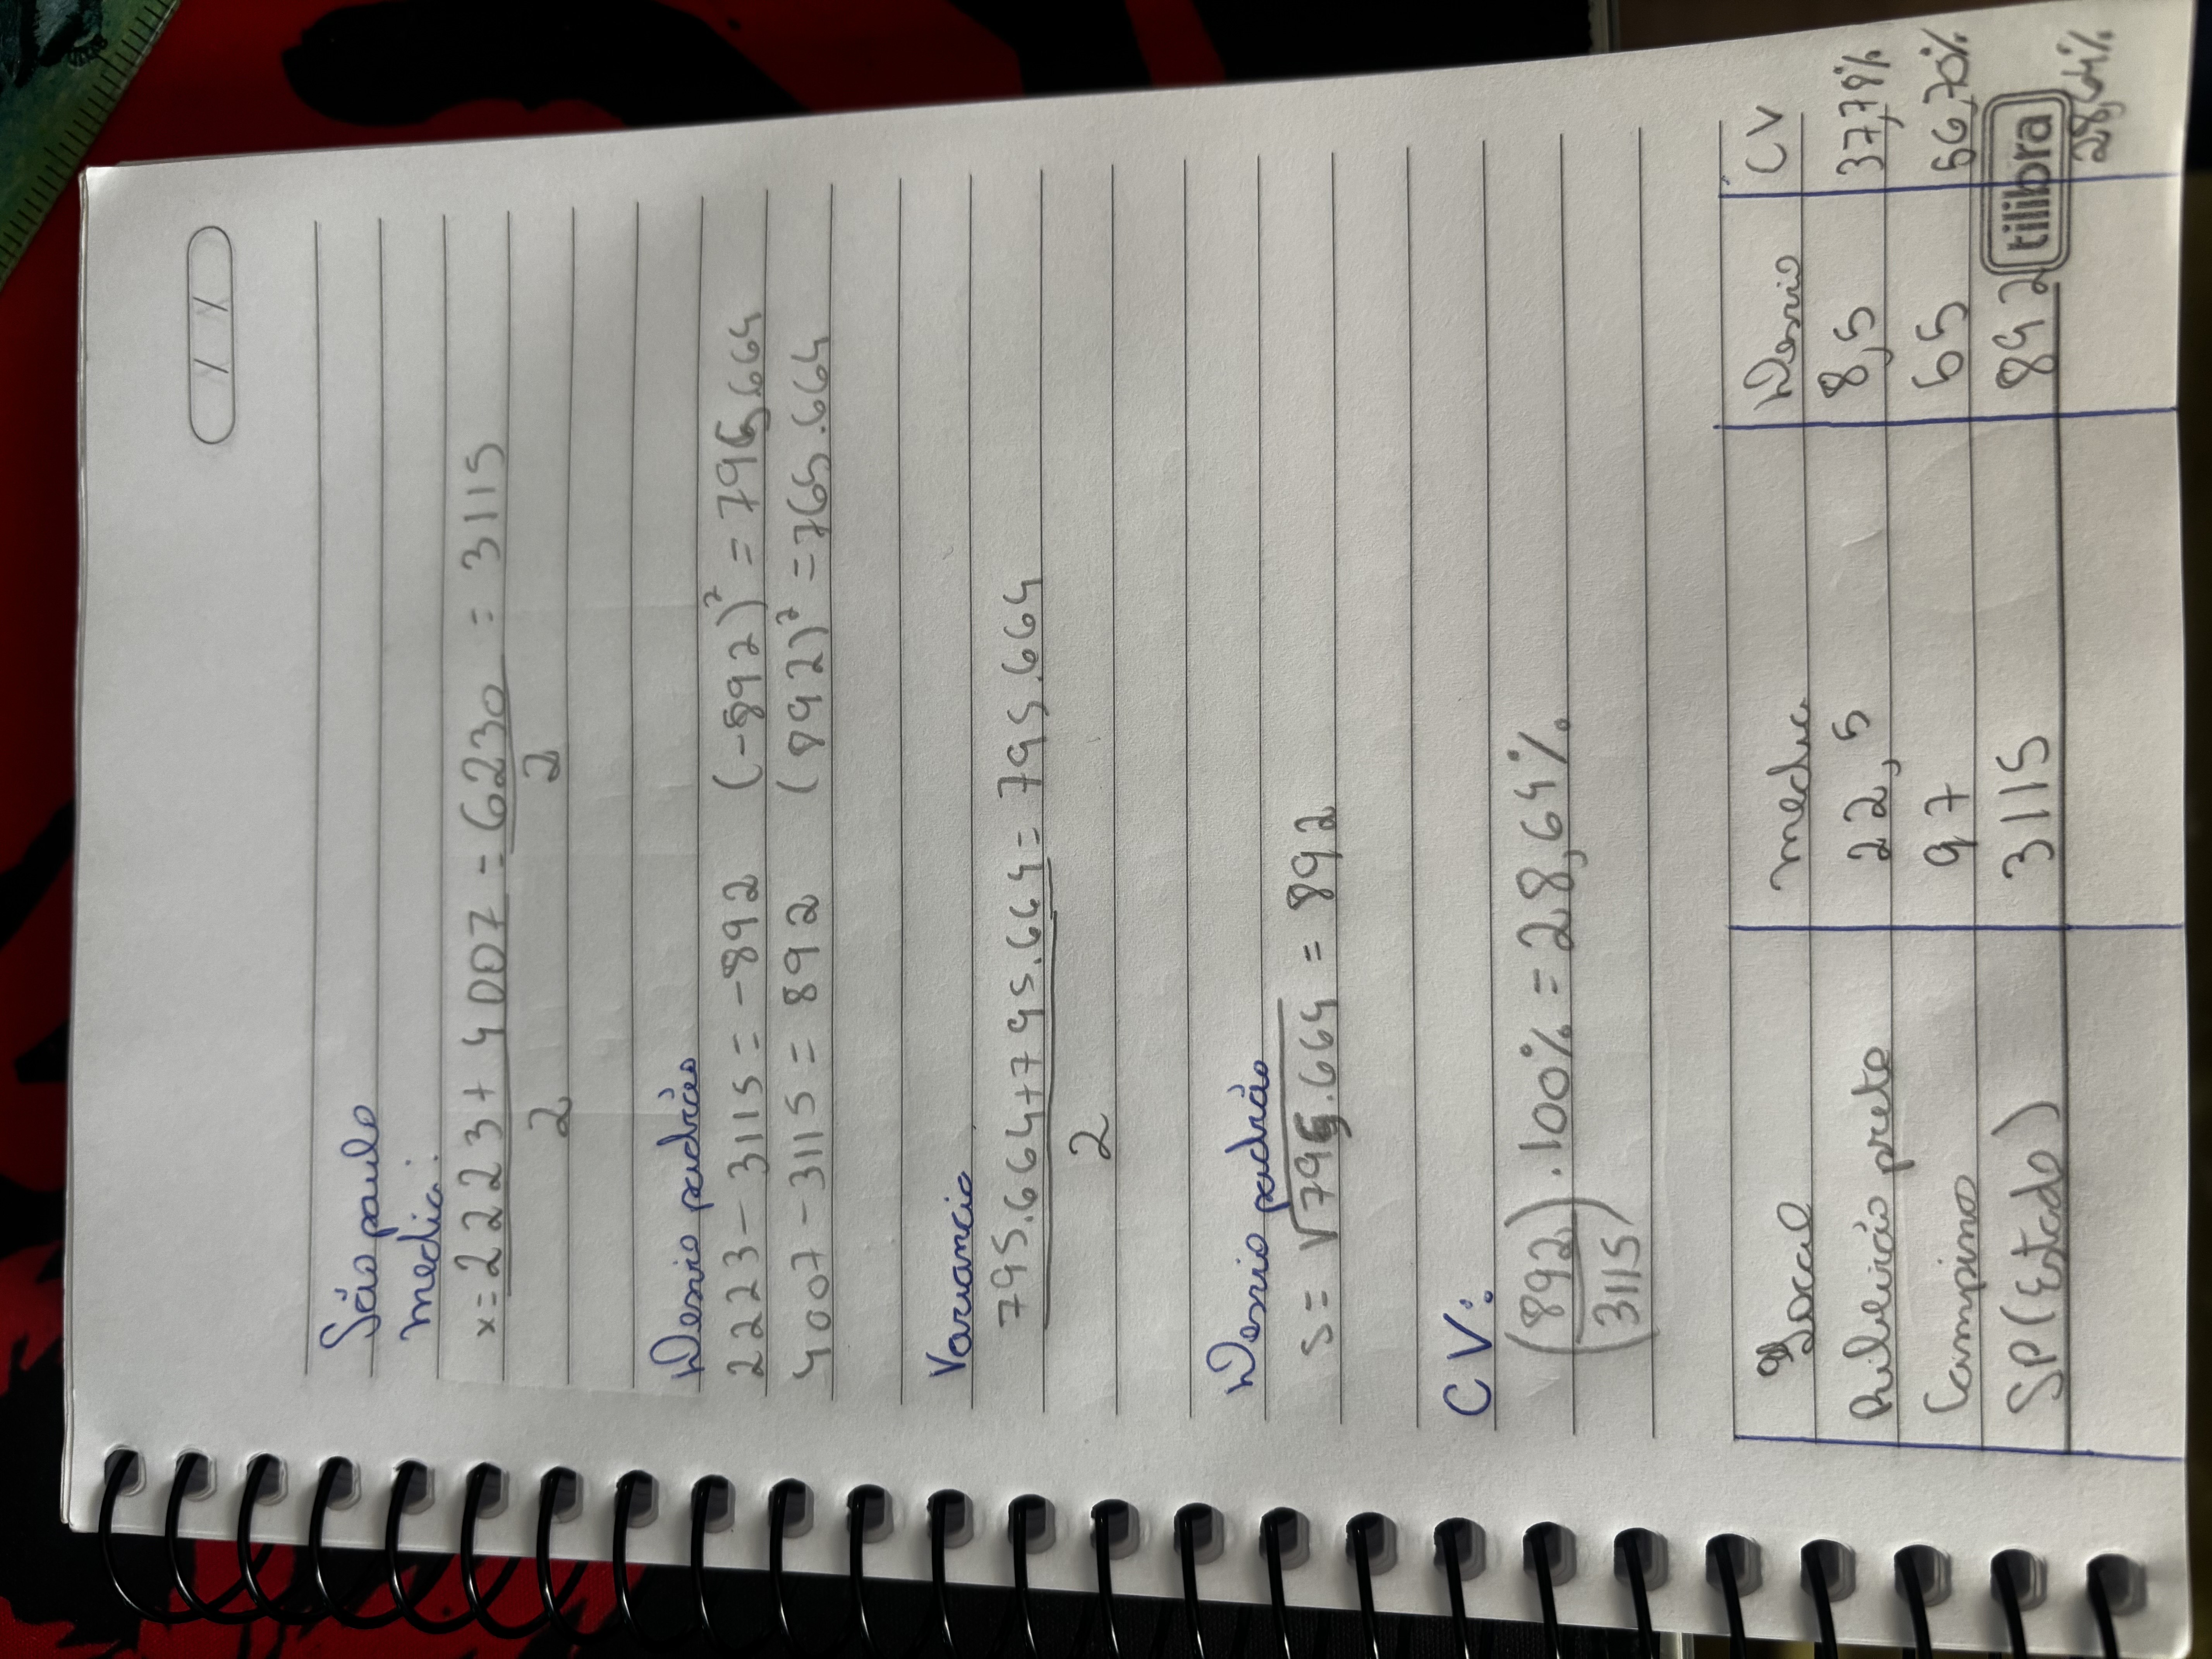 / /
São paulo
media:
x= 2223 + 4007 = 6230 = 3115
2 2
Desvio padrão
2223 - 3115 = -892 (-892)² = 795.664
4007 - 3115 = 892 (892)² = 765.664
Variancia
795.664+795.664 = 795.664
2
Desvio padrão
S= √795.664 = 892
CV:
(892/3115) . 100% = 28,64%
Local media Desvio CV
Ribeirão preto 22,5 8,5 37,78%
Campinas 97 55 56,70%
SP (Estado) 3115 892
tilibra
28,64%